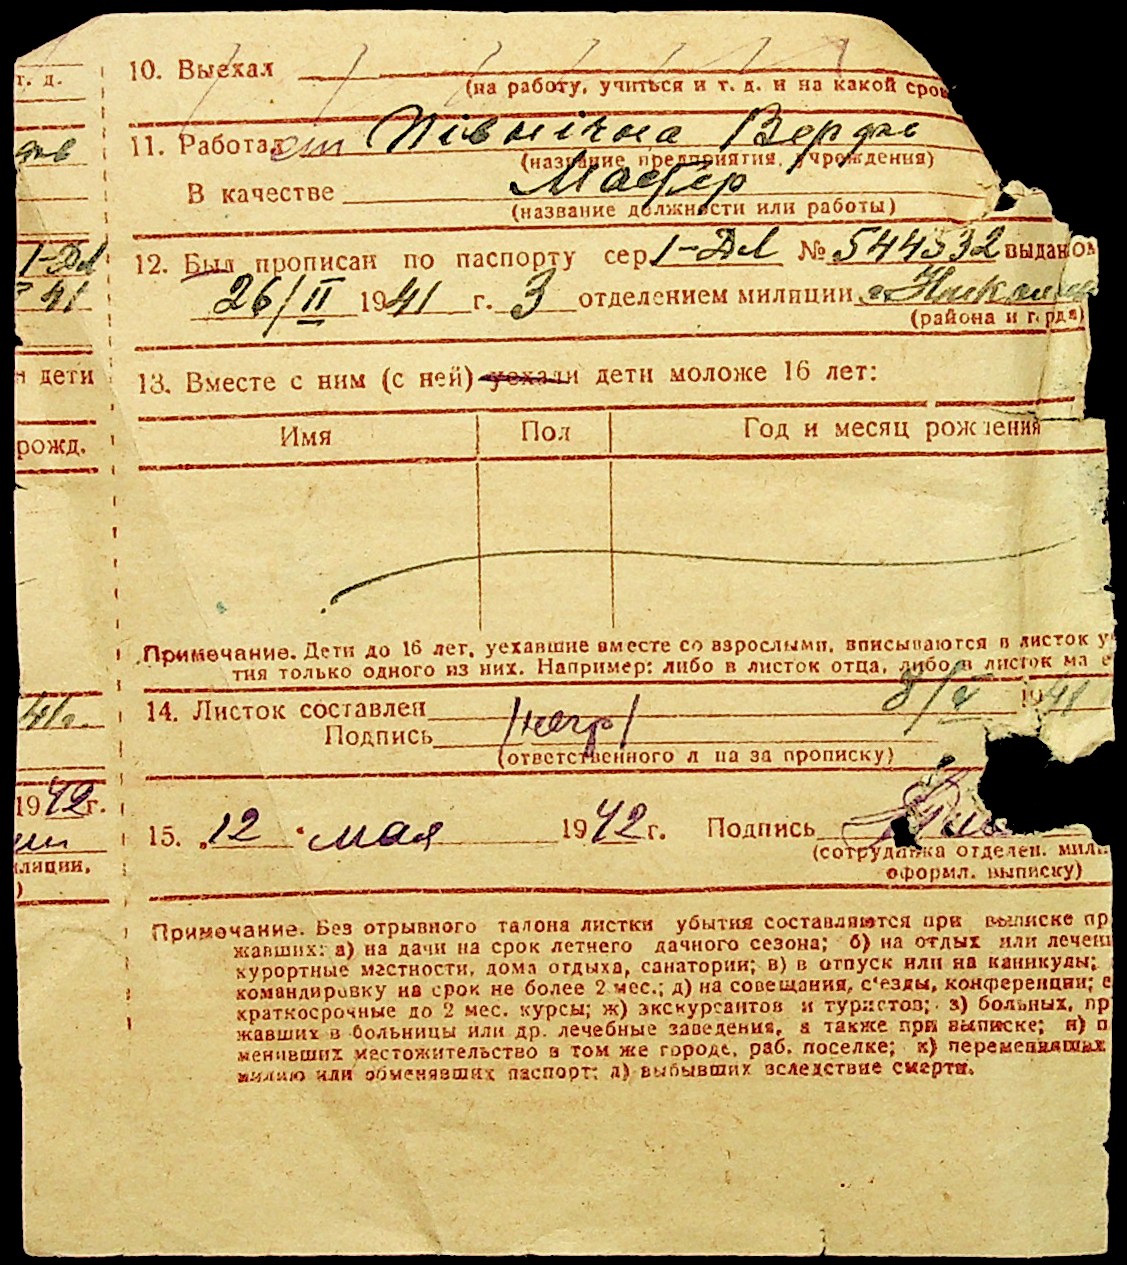 т. д.
41
дети
рожд.
41г.
1942г.
лиции,
)
10. Выехал
(на работу, учиться и т. д. и на какой срок
11. Работал Північна Верфь
(название предприятия, учреждения)
В качестве Мастер
(название должности или работы)
12. Был прописан по паспорту сер. 1-ДЛ № 544532 выданом
26/II 1941 г. 3 отделением милиции г.
(района и города)
13. Вместе с ним (с ней) уехали дети моложе 16 лет:
Имя Пол Год и месяц рождения
Примечание. Дети до 16 лет, уехавшие вместе со взрослыми, вписываются в листок у
тия только одного из них. Например: либо в листок отца, либо в листок ма
14. Листок составлен 8/V 1941
Подпись
(ответственного лица за прописку)
15. „12“ мая 1942г. Подпись
(сотрудника отделен. мили
оформл. выписку)
Примечание. Без отрывного талона листки убытия составляются при выписке пр
жавших: а) на дачи на срок летнего дачного сезона; б) на отдых или лечен
курортные местности, дома отдыха, санатории; в) в отпуск или на каникулы;
командировку на срок не более 2 мес.; д) на совещания, с'езды, конференции; е
краткосрочные до 2 мес. курсы; ж) экскурсантов и туристов; з) больных, пр
жавших в больницы или др. лечебные заведения, а также при выписке; и) п
менивших местожительство в том же городе, раб. поселке; к) переменивших
милию или обменявших паспорт; л) выбывших вследствие смерти.